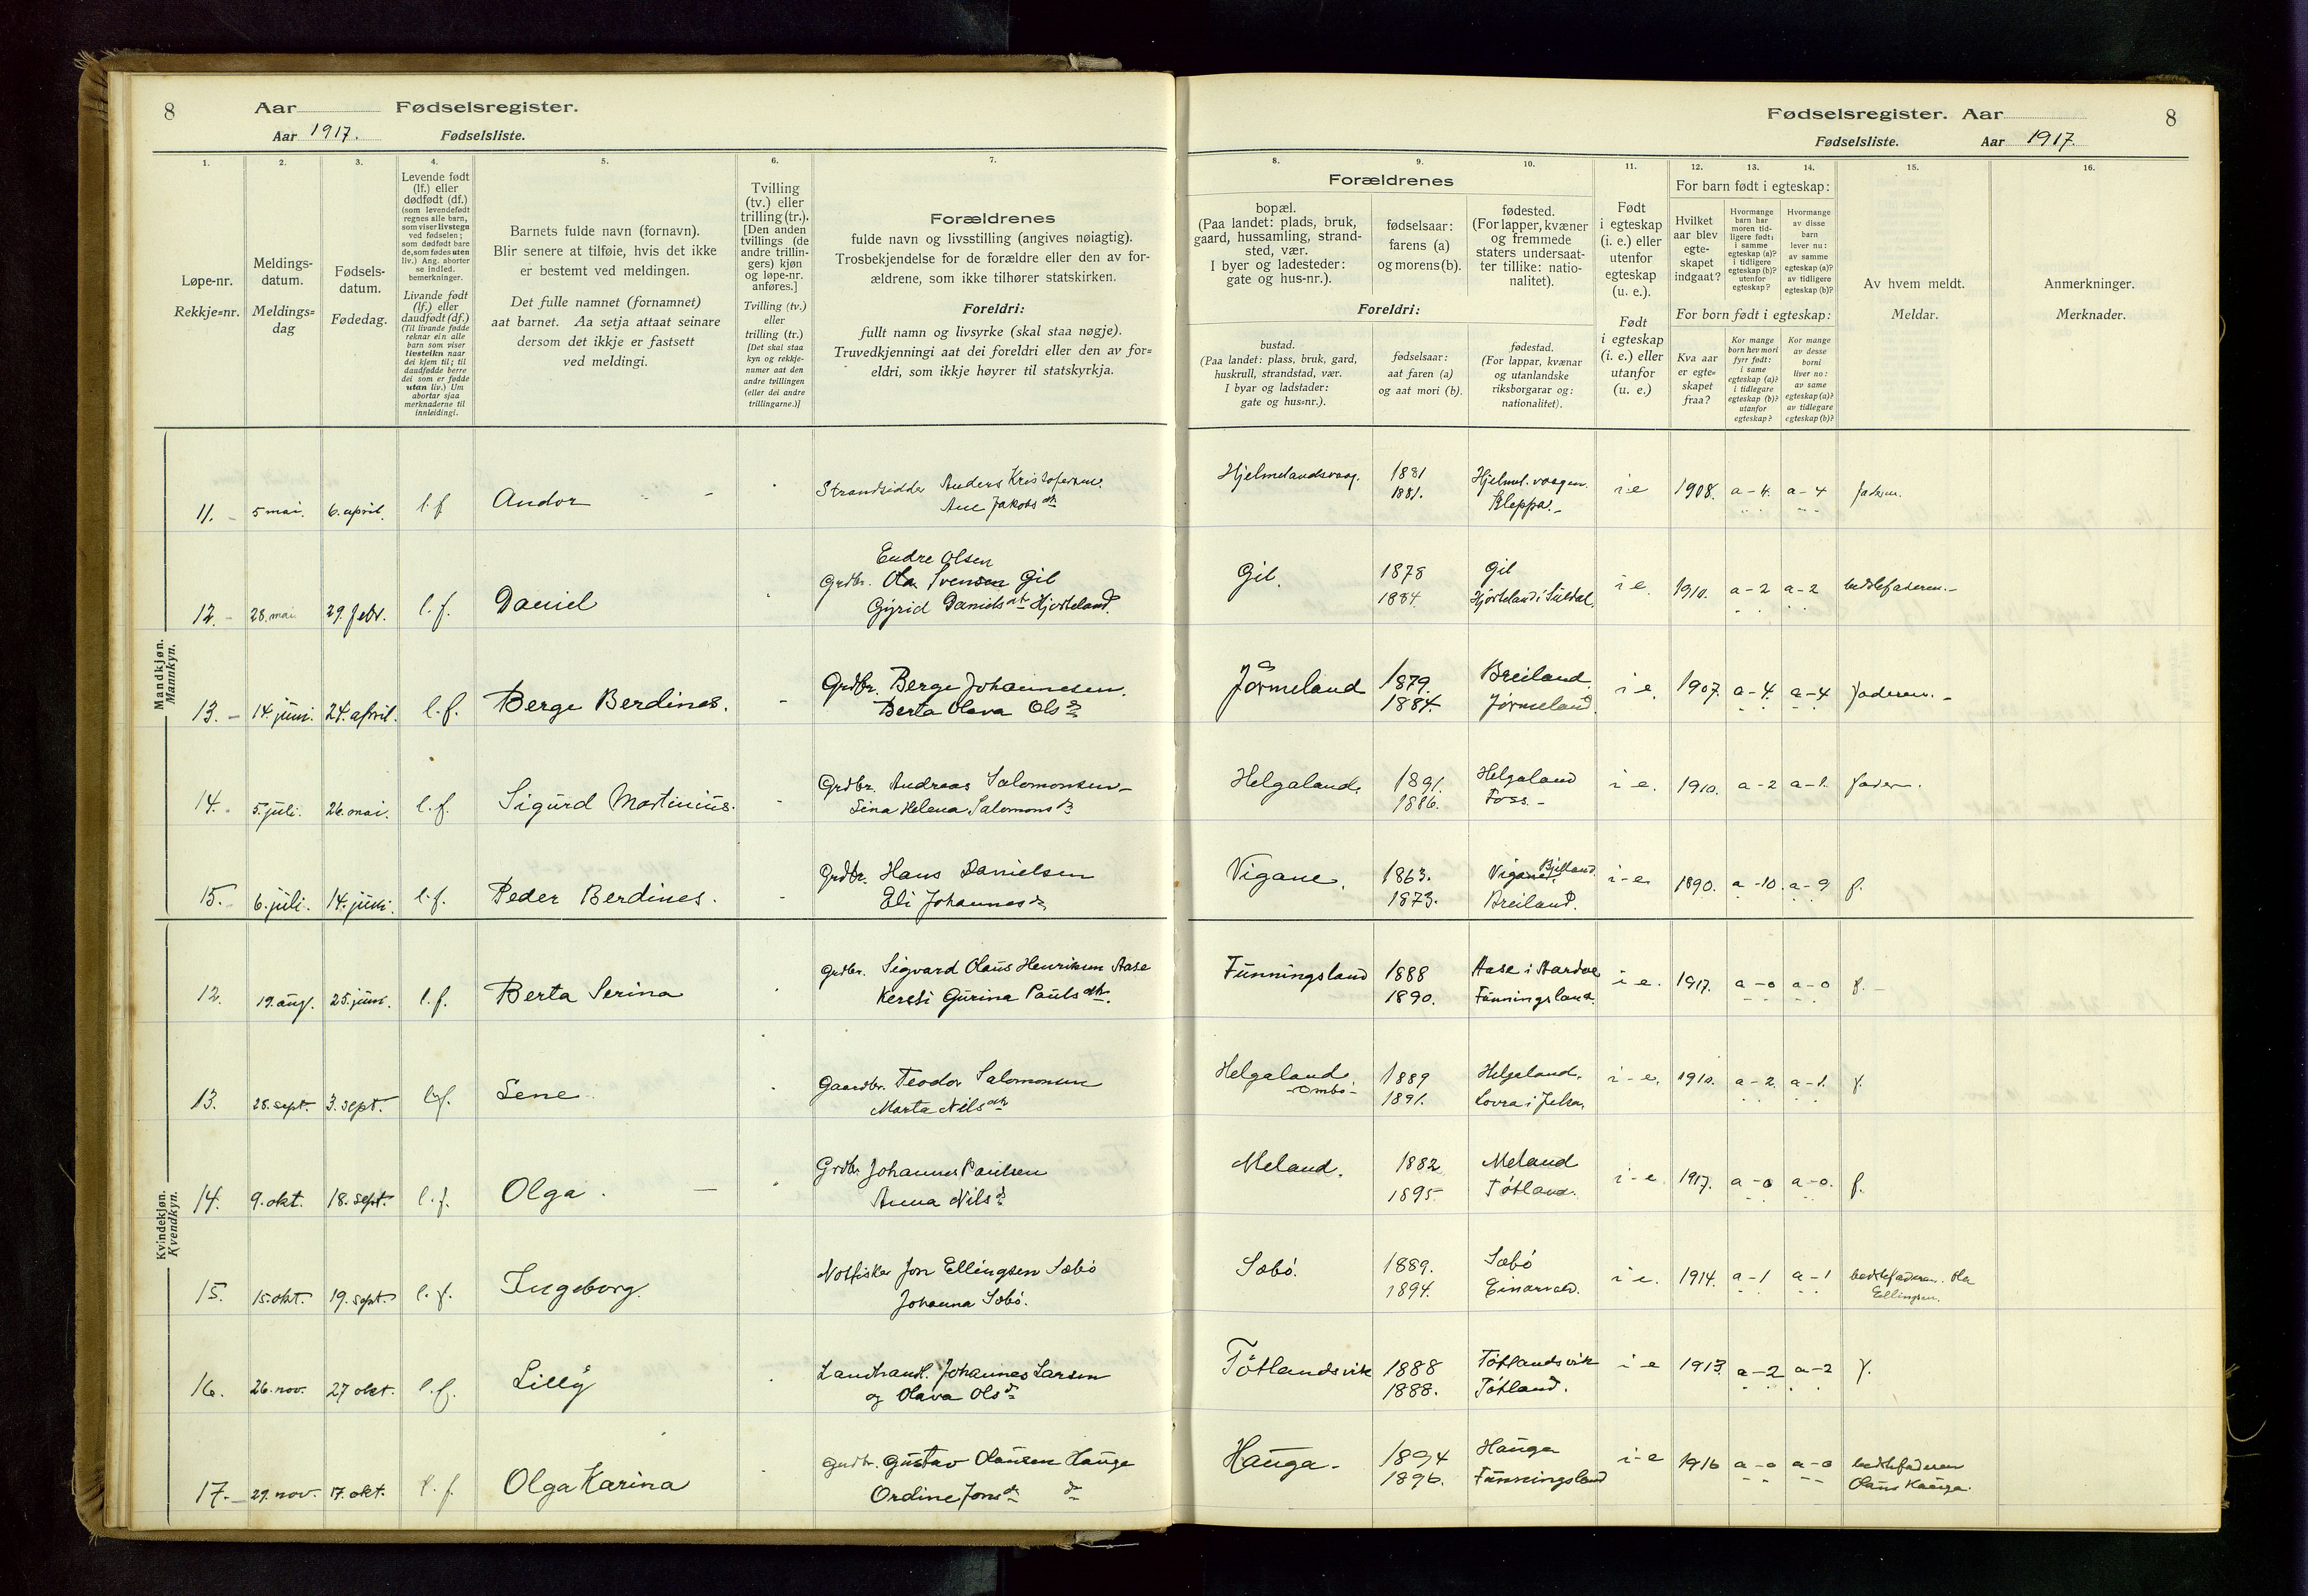 8 Aar Fødselsregister.
Aar 1917. Fødselsliste.
Fødselsregister. Aar 8
Fødselsliste. Aar 1917.
1. 2. 3. 4. 5. 6. 7.
Løpe-nr.
Rekkje=nr.
Meldings-
datum.
Meldings=
dag
Fødsels-
datum.
Fødedag.
Levende født
(lf.) eller
dødfødt (df.)
(som levendefødt
regnes alle barn,
som viser livstegn
ved fødselen;
som dødfødt bare
de, som fødes uten
liv.) Ang. aborter
se indled.
bemerkninger.
Livande født
(lf.) eller
daudfødt (df.)
(Til livande fødde
reknar ein alle
barn som viser
livsteikn naar
dei kjem til; til
daudfødde berre
dei som er fødde
utan liv.) Um
abortar sjaa
merknaderne til
innleidingi.
Barnets fulde navn (fornavn).
Blir senere at tilføie, hvis det ikke
er bestemt ved meldingen.
Det fulle namnet (fornamnet)
aat barnet. Aa setja attaat seinare
dersom det ikkje er fastsett
ved meldingi.
Tvilling
(tv.) eller
trilling (tr.).
[Den anden
tvillings (de
andre trillin-
gers) kjøn
og løpe-nr.
anføres.]
Tvilling (tv.)
eller
trilling (tr.)
[Det skal staa
kyn og rekkje-
numer aat den
andre tvillingen
(eller dei andre
trillingarne.)]
Forældrenes
fulde navn og livsstilling (angives nøiagtig).
Trosbekjendelse for de forældre eller den av for-
ældrene, som ikke tilhører statskirken.
Foreldri:
fullt namn og livsyrke (skal staa nøgje).
Truvedkjenningi aat dei foreldri eller den av for=
eldri, som ikkje høyrer til statskyrkja.
8. 9. 10. 11. 12. 13. 14. 15. 16.
Forældrenes
bopæl.
(Paa landet: plads, bruk,
gaard, hussamling, strand-
sted, vær.
I byer og ladesteder:
gate og hus-nr.).
fødselsaar:
farens (a)
og morens (b).
fødested.
(For lapper, kvæner
og fremmede
staters undersaat-
ter tillike: natio-
nalitet).
Foreldri:
bustad.
(Paa landet: plass, bruk, gard,
huskrull, strandstad, vær.
I byar og ladstader:
gate og hus=nr.).
fødselsaar:
aat faren (a)
og aat mori (b).
fødestad.
(For lappar, kvænar
og utanlandske
riksborgarar og:
nationalitet).
Født
i egteskap
(i. e.) eller
utenfor
egteskap
(u. e.).
Født
i egteskap
(i. e.) eller
utanfor
(u. e.)
For barn født i egteskap:
Hvilket
aar blev
egte-
skapet
indgaat?
Hvormange
barn har
moren tid-
ligere født:
i samme
egteskap (a)?
i tidligere
egteskap (b)?
utenfor
egteskap?
Hvormange
av disse
barn
lever nu:
av samme
egteskap (a)?
av tidligere
egteskap (b)?
For born født i egteskap:
Kva aar
er egte=
skapet
fraa?
Kor mange
born hev mori
fyrr født:
i same
egteskap (a)?
i tidlegare
egteskap (b)?
utanfor
egteskap?
Kor mange
av desse
borni
liver no:
av same
egteskap (a)?
av tidlegare
egteskap (b)?
Av hvem meldt.
Meldar.
Anmerkninger.
Merknader.
Mandkjøn.
Mannkyn.
11. 5 mai. 6. april. l. f Andor Strandsidder Anders Kristofersen.
Ane Jakobsdtr
Hjelmelandsvaag. 1881 Hjelml. vaagen i e 1908. a-4. a-4 faderen.
1881. Kleppa.
12. 28. mai 29. febr. l. f. Daniel Endre Olsen
Grdbr. Ola Svensen Gil
Gyrid Danielsdtr Hjorteland.
Gil. 1878 Gil i e. 1910. a-2 a-2 bedstefaderen.
1884. Hjorteland i Suldal.
13. 14. juni. 24. april. l. f. Berge Berdines. Grdbr. Berge Johannesen.
Berta Olava Olsdr
Jørmeland 1879. Breiland i e. 1907. a-4. a-4 faderen.
1884. Jørmeland
14. 5. juli. 26. mai. l. f. Sigurd Martinius. Grdbr. Andreas Salomonsen
Sina Helena Salomonsdr
Helgaland. 1891. Helgaland i e. 1910. a-2 a-1. fader.
1886. Foss.
15. 6. juli. 14. juni. l. f. Peder Berdines. Grdbr. Hans Danielsen
Eli Johannesdr
Vigane. 1863. Vigane i-e. 1890. a-10. a-9 f.
1873. Breiland.
Kvindekjøn.
Kvendkyn.
12. 19. aug. 25. juni. l. f. Berta Serina Grdbr. Sigvard Olaus Henriksen Aase
Kersti Gurina Paulsdtr.
Funningsland 1888 Aase i Aardal i e. 1917. a-0 a-0 f.
1890. Funningsland.
13. 28. sept. 3. sept. l. f. Lene Gaardbr. Teodor Salomonsen
Marta Nilsdtr
Helgaland 1889 Helgaland. i-e. 1910. a-2. a-1. f.
Ombo 1891. Lovra i Jelsa.
14. 9. okt. 18. sept. l. f. Olga. Grdbr Johannes Paulsen
Anna Nilsdr
Meland. 1882 Meland i-e. 1917. a-0 a-0. f.
1895 Tøtland.
15. 15. okt. 19. sept. l. f. Ingeborg. Notfisker Jon Ellingsen Sæbø
Johanna Sæbø.
Sæbø. 1889. Sæbø i e. 1914. a-1 a-1 bedstefaderen. Ola
1894. Ellingsen.
16. 26. nov. 27 okt. l. f. Lilly Landhandl. Johannes Larsen
og Olava Olsdr
Tøtlandsvik 1888 Tøtlandsvik i-e 1913 a-2 a-2 f.
1888. Tøtland.
17. 29. nov. 17. okt. l. f. Olga Karina Grdbr. Gustav Olausen Hauge
Ordine Jonsdr
Hauga. 1894 Hauga i-e 1916 a-0 a-0 bedstefaderen
1896. Funningsland Olaus Hauga.